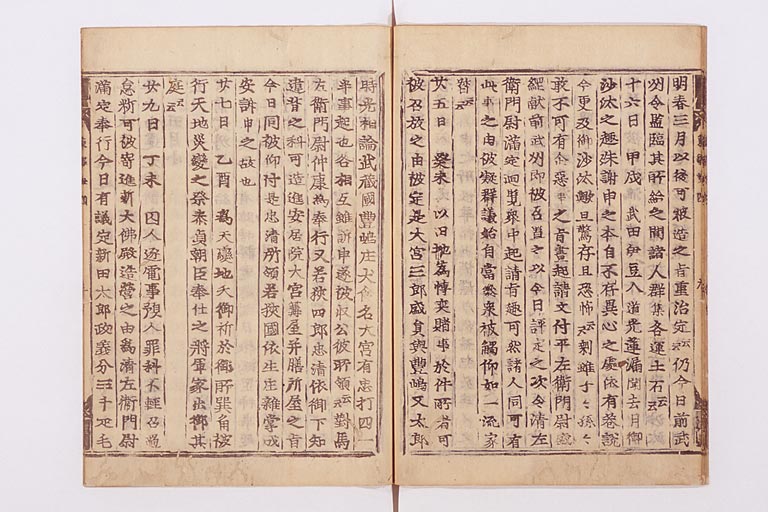 明春三月以後可被造之旨重治定云云仍今日前武
州令監臨其所給之間諸人群集各運土石云云
十六日 甲戌 武田伊豆入道光蓮漏聞去月御
沙汰之趣殊謝申之本自不存異心之處依有巷説
今更及御沙汰歟且驚存且恐怖云云剰雖于子孫等
敢不可有令惡事之旨書起請文付平左衛門尉盛
經献前武州即被召置之以今日評定之次令清左
衛門尉滿定廻覽衆中起請有趣可然諸人同可有
此事之由被凝群議始自當參衆被觸仰如一流家
督云云
廿五日 癸未 以旧地爲博奕賭事於件所者可
被召放之由被定是大宮三郎盛員與豐嶋又太郎
時光相論武藏國豐嶋庄犬食名大宮有忠打四一
半事起也各相互雖訴申遂被収公彼所領云云對馬
左衛門尉仲康為奉行又若狹四郎忠清依御下知
違背之科可造進安居院大宮篝屋并膳所屋之旨
今日同被仰付是忠清所領若狹國依生庄雜掌成
安訴申之故也
廿七日 乙酉 爲天變地夭御祈於御所巽角被
行天地災變之祭泰貞朝臣奉仕之將軍家出御其
庭云云
廿九日 丁未 囚人逐電事預人罪科不輕召過
怠料可被寄進新大佛殿造營之由爲清左衛門尉
滿定奉行今日有議定新田太郎政義分三千疋毛